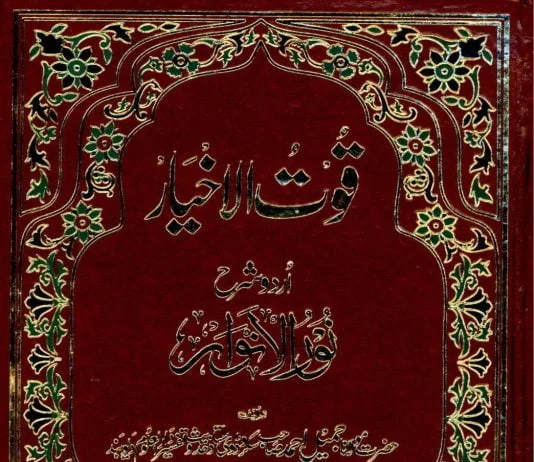 قُوتُ الاخیَار
اُردو شرح
نُورُ الْاَنْوَار
حضرت مولانا جمیل احمد صاحب